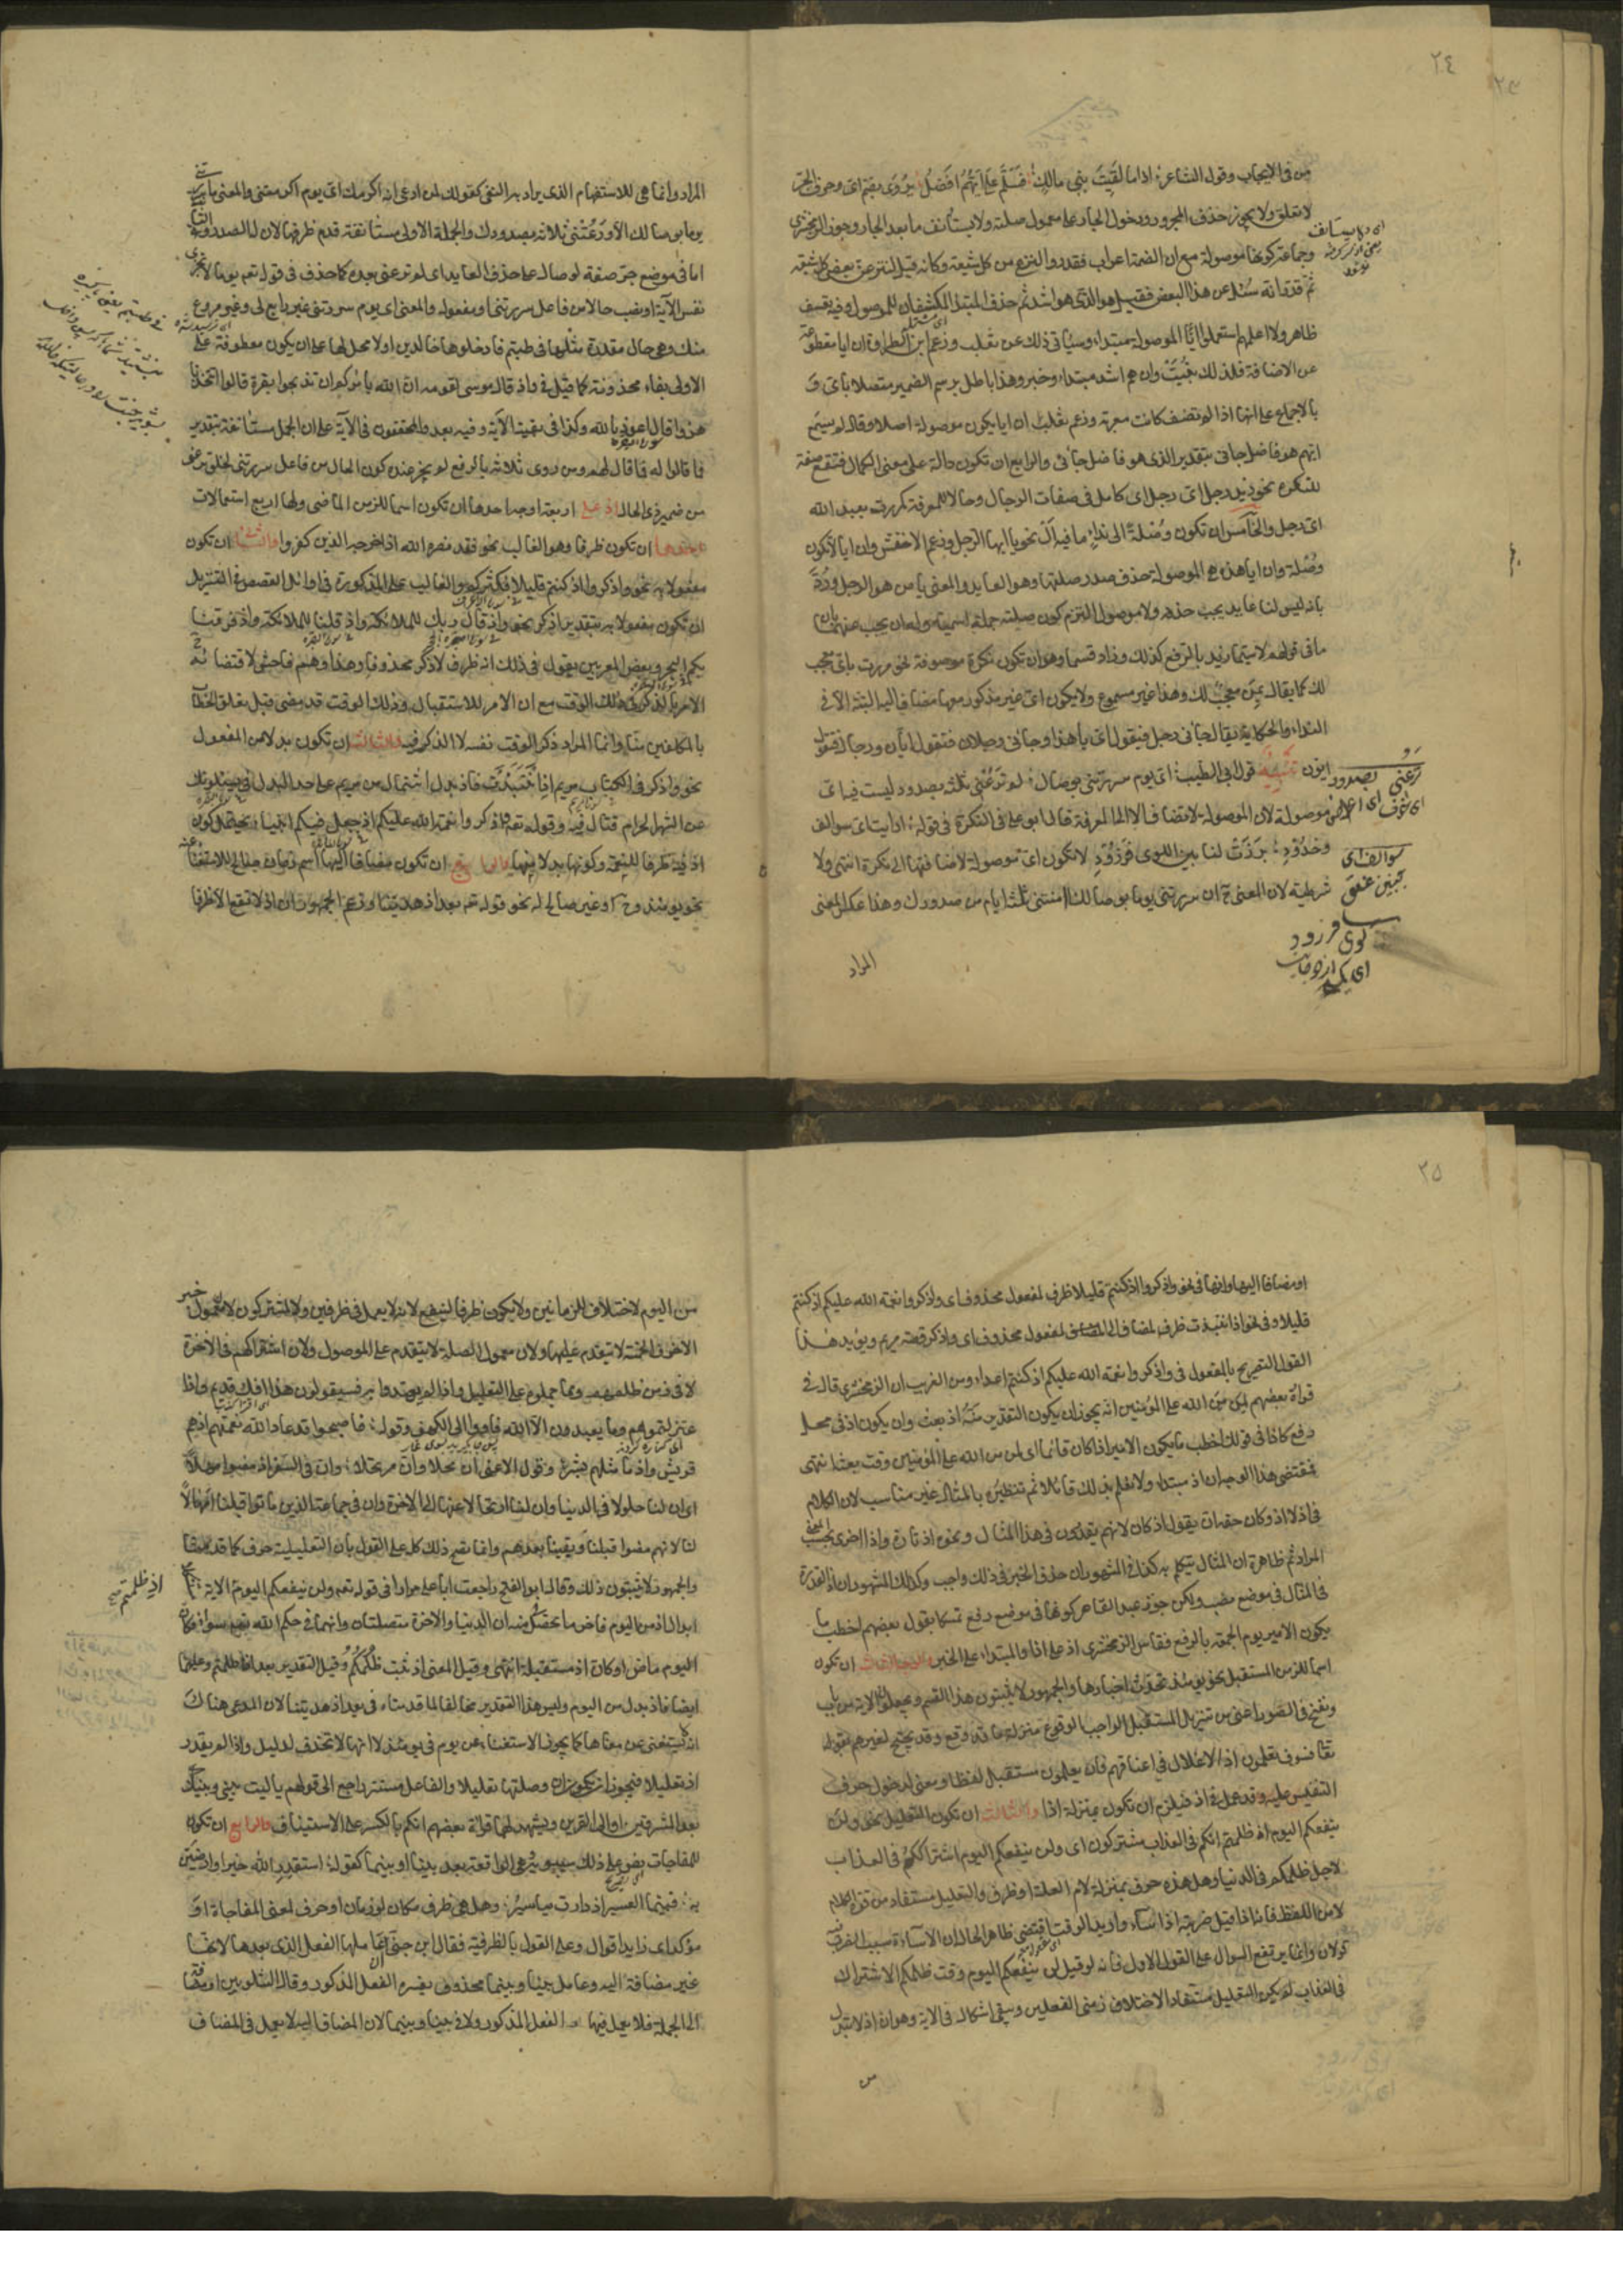 ٢٤
من في الايجاب وقول الشاعر اذا ما لقيت بني مالك فسلم على ايهم افضل يروى بضم اى وحروف الجر
لا تعلق ولا يجوز حذف المجرور ودخول الجار على معمول صلته ولا يستأنف ما بعد الجار وجوز الزمخشرى
وجماعة كونها موصولة مع ان الضمة اعراب فقدروا لننزعن من كل شيعة وكانه قيل لننزعن بعض كل شيعة
ثم قدر انه سئل عن هذا البعض فقيل هو الذى هو اشد ثم حذف المبتدا المكتنفان للموصول وفيه تعسف
ظاهر ولا اعلمهم استعملوا ايا الموصولة مبتداء وسياتى ذلك عن ثعلب وزعم ابن الطراوة ان ايا مقطوعة
عن الاضافة فلذلك بنيت وان هم اشد مبتداء وخبر وهذا باطل برسم الضمير متصلا باى و
بالاجماع على انها اذا لم تضف كانت معربة وزعم ثعلب ان ايا يكون موصولة اصلا وقال لم يسمع
ايهم هو فاضل جاءنى بتقدير الذى هو فاضل جاءنى والرابع ان تكون دالة على معنى الكمال فتقع صفة
للنكرة نحو زيد رجل اى رجل اى كامل فى صفات الرجال وحالا للمعرفة كمررت بعبد الله
اى رجل والخامس ان تكون وصلة الى نداء ما فيه ال نحو يا ايها الرجل وزعم الاخفش وان ايا لا تكون
وصلة وان ايا هذه هى الموصولة حذف صدر صلتها وهو العايد والمعنى يا من هو الرجل ورد
بانه ليس لنا عايد يجب حذفه ولا موصول التزم كون صلته جملة اسمية وله ان يجيب عنهما بان
ما فى قولهم لا سيما زيد بالرفع كذلك وزاد قسما وهو ان تكون نكرة موصوفة نحو مررت باى معجب
لك كما يقال بمن معجب لك وهذا غير مسموع ولا يكون اى غير مذكور معها مضاف اليه البتة الا فى
النداء والحكاية يقال جاءنى رجل فيقول اى يا هذا وجاءنى رجلان فتقول ايان ورجال فتقول
ايون تنبيه قول ابى الطيب اى يوم سررتنى بوصال لم ترعنى ثلثة بصدود ليست فيه اى
موصولة لان الموصولة لا تضاف الا الى المعرفة قال ابو على فى التذكرة فى قوله ارايت اى سوالف
وخدود برزت لنا بين اللوى فزرود لا تكون اى موصولة لاضافتها الى نكرة انتهى ولا
شرطية لان المعنى ح ان سررتنى يوما بوصالك امنتنى ثلثة ايام من صدودك وهذا عكس المعنى
المراد
المراد وانما هى للاستفهام الذى يراد به النفى كقولك لمن ادعى انه اكرمك اى يوم اكرمتنى والمعنى ما سررتنى
يوما بوصالك الا روعتنى ثلاثة بصدودك والجملة الاولى مستأنفة قدم ظرفها لان له الصدر والثانية
اما فى موضع جر صفة لوصال على حذف العايد اى لم ترعنى بعده كما حذف فى قوله تعم يوما لا تجزى
نفس الآية او نصب حالا من فاعل سررتنى او مفعوله والمعنى اى يوم سررتنى غير رايع لى وغير مروع
منك وهى حال مقدرة مثلها فى طبتم فادخلوها خالدين او لا محل لها على ان يكون معطوفة على
الاولى بفاء محذوفة كما قيل فى واذ قال موسى لقومه ان الله يأمركم ان تذبحوا بقرة قالوا اتتخذنا
هزوا قال اعوذ بالله وكذا فى بقية الآية وفيه بعد والمحققون فى الآية على ان الجمل مستأنفة بتقدير
فما قالوا له فما قال لهم ومن روى ثلاثة بالرفع لم يجز عنده كون الحال من فاعل سررتنى لخلو ترعنى
من ضمير ذى الحال اذ على اربعة اوجه احدها ان تكون اسما للزمن الماضى ولها اربع استعمالات
احدها ان تكون ظرفا وهو الغالب نحو فقد نصره الله اذ اخرجه الذين كفروا والثانى ان تكون
مفعولا به نحو واذكروا اذ كنتم قليلا فكثركم والغالب على المذكورة فى اوائل القصص فى التنزيل
ان تكون مفعولا به بتقدير اذكر نحو واذ قال ربك للملائكة واذ قلنا للملائكة واذ فرقنا
بكم البحر وبعض المعربين يقول فى ذلك انه ظرف لاذكر محذوفا وهذا وهم فاحش لاقتضائه ح
الامر بالذكر فى ذلك الوقت مع ان الامر للاستقبال وذلك الوقت قد مضى قبل تعلق الخطاب
بالمكلفين منا وانما المراد ذكر الوقت نفسه لا الذكر فيه والثالث ان تكون بدلا من المفعول
نحو واذكر فى الكتاب مريم اذ انتبذت فاذ بدل اشتمال من مريم على حد البدل فى يسئلونك
عن الشهر الحرام قتال فيه وقوله تعه اذكروا نعمة الله عليكم اذ جعل فيكم انبياء يحتمل كون
اذ فيه ظرفا للنعمة وكونها بدلا منها والرابع ان تكون مضافا اليها اسم زمان صالح للاستغناء عنه
نحو يومئذ وح او غير صالح له نحو قوله تعه بعد اذ هديتنا وزعم الجمهور ان اذ لا تقع الا ظرفا
٢٥
او مضافا اليها وانها فى نحو واذكروا اذ كنتم قليلا ظرف لمفعول محذوف اى واذكروا نعمة الله عليكم اذ كنتم
قليلا وفى نحو اذ انتبذت ظرف لمضاف الى المفعول محذوف اى واذكر قصة مريم ويؤيد هذا
القول التصريح بالمفعول فى واذكروا نعمة الله عليكم اذ كنتم اعداء ومن الغريب ان الزمخشرى قال فى
قراءة بعضهم لمن من الله على المؤمنين انه يجوز ان يكون التقدير منه اذ بعث وان يكون اذ فى محل
رفع كاذا فى قولك اخطب ما يكون الامير اذا كان قائما اى لمن من الله على المؤمنين وقت بعثه انتهى
فمقتضى هذا الوجه ان اذ مبتداء ولا نعلم بذلك قائلا ثم تنظيره بالمثال غير مناسب لان الكلام
فى اذ لا اذا وكان حقه ان يقول اذ كان لانهم يقدرون فى هذا المثال ونحوه اذ تارة واذا اخرى بحسب المعنى
المراد ثم ظاهره ان المثال يتكلم به كذا فى المشهور ان حذف الخبر فى ذلك واجب وكذلك المشهور ان اذ المقدرة
فى المثال فى موضع نصب ولكن جوز عبد القاهر كونها فى موضع رفع تمسكا بقول بعضهم اخطب ما
يكون الامير يوم الجمعة بالرفع فقاس الزمخشرى اذ على اذا والمبتداء على الخبر والوجه الثانى ان تكون
اسما للزمن المستقبل نحو يومئذ تحدث اخبارها والجمهور لا يثبتون هذا القسم ويجعلون الآية من باب
ونفخ فى الصور اعنى من تنزيل المستقبل الواجب الوقوع منزلة ما قد وقع وقد يحتج لغيرهم بقوله
تعا فسوف يعلمون اذ الاغلال فى اعناقهم فان يعلمون مستقبل لفظا ومعنى لدخول حرف
التنفيس عليه وقد عمل فى اذ فيلزم ان تكون بمنزلة اذا والثالث ان تكون للتعليل نحو ولن
ينفعكم اليوم اذ ظلمتم انكم فى العذاب مشتركون اى ولن ينفعكم اليوم اشتراككم فى العذاب
لاجل ظلمكم فى الدنيا وهل هذه حرف بمنزلة لام العلة او ظرف والتعليل مستفاد من قوة الكلام
لا من اللفظ فانه اذا قيل ضربته اذ اساء واريد الوقت اقتضى ظاهر الحال ان الاساءة سبب الضرب
قولان وانما يرتفع السوال على القول الاول فانه لو قيل لن ينفعكم اليوم وقت ظلمكم الاشتراك
فى العذاب لم يكن التعليل مستفادا لاختلاف زمنى الفعلين ويبقى اشكال فى الآية وهو ان اذ لا تبدل
من
من اليوم لاختلاف الزمانين ولا يكون ظرفا لينفع لانه لا يعمل فى ظرفين ولا لمشتركون لان معمول خبر
الاحرف الخمسة لا يتقدم عليها ولان معمول الصلة لا يتقدم على الموصول ولان اشتراكهم فى الآخرة
لا فى زمن ظلمهم ومما حملوه على التعليل واذ لم يهتدوا به فسيقولون هذا افك قديم واذا
عتزلتموهم وما يعبدون الا الله فأووا الى الكهف وقوله فاصبحوا قد اعاد الله نعمتهم اذ هم
قريش واذ ما مثلهم بشر وقول الاعشى ان محلا وان مرتحلا وان فى السفر اذ مضوا مهلا
اى ان لنا حلولا فى الدنيا وان لنا ارتحالا عنها الى الآخرة وان فى جماعة الذين ماتوا قبلنا امهالا
لنا لانهم مضوا قبلنا وبقينا بعدهم وانما يصح ذلك كله على القول بان التعليلية حرف كما قدمنا
والجمهور لا يثبتون ذلك وقال ابو الفتح راجعت ابا على مرارا فى قوله تعه ولن ينفعكم اليوم الآية
ابدال اذ من اليوم فآخر ما تحصل منه ان الدنيا والآخرة متصلتان وانهما فى حكم الله تعه سواء فكان
اليوم ماض او كان اذ مستقبلة انتهى وقيل المعنى اذ ثبت ظلمكم وقيل التقدير بعد اذ ظلمتم وعليهما
ايضا فاذ بدل من اليوم وليس هذا التقدير مخالفا لما قدمناه فى بعد اذ هديتنا لان المدعى هناك
انه لا يستغنى عن معناها كما يجوز الاستغناء عن يوم فى يومئذ لا انها لا تحذف لدليل واذا لم يقدر
اذ تعليلا فيجوز ان تكون ان وصلتها تعليلا والفاعل مستتر راجع الى قولهم يا ليت بينى وبينك
بعد المشرقين او الى القرين ويشهد لهما قراءة بعضهم انكم بالكسر على الاستيناف والرابع ان تكون
للمفاجات نص على ذلك سيبويه وهى الواقعة بعد بينا او بينما كقوله استقدر الله خيرا وارضين
به فبينما العسر اذ دارت مياسير وهل هى ظرف مكان او زمان او حرف لمعنى المفاجاة او
مؤكد اى زايد اقوال وعلى القول بالظرفية فقال ابن جنى عاملها الفعل الذى بعدها لانها
غير مضافة اليه وعامل بينا وبينما محذوف يفسره الفعل المذكور وقال الشلوبين اذ مضافة
الى الجملة فلا يعمل فيها الفعل المذكور ولا فى بينا وبينما لان المضاف اليه لا يعمل فى المضاف
اذ ظلمتم